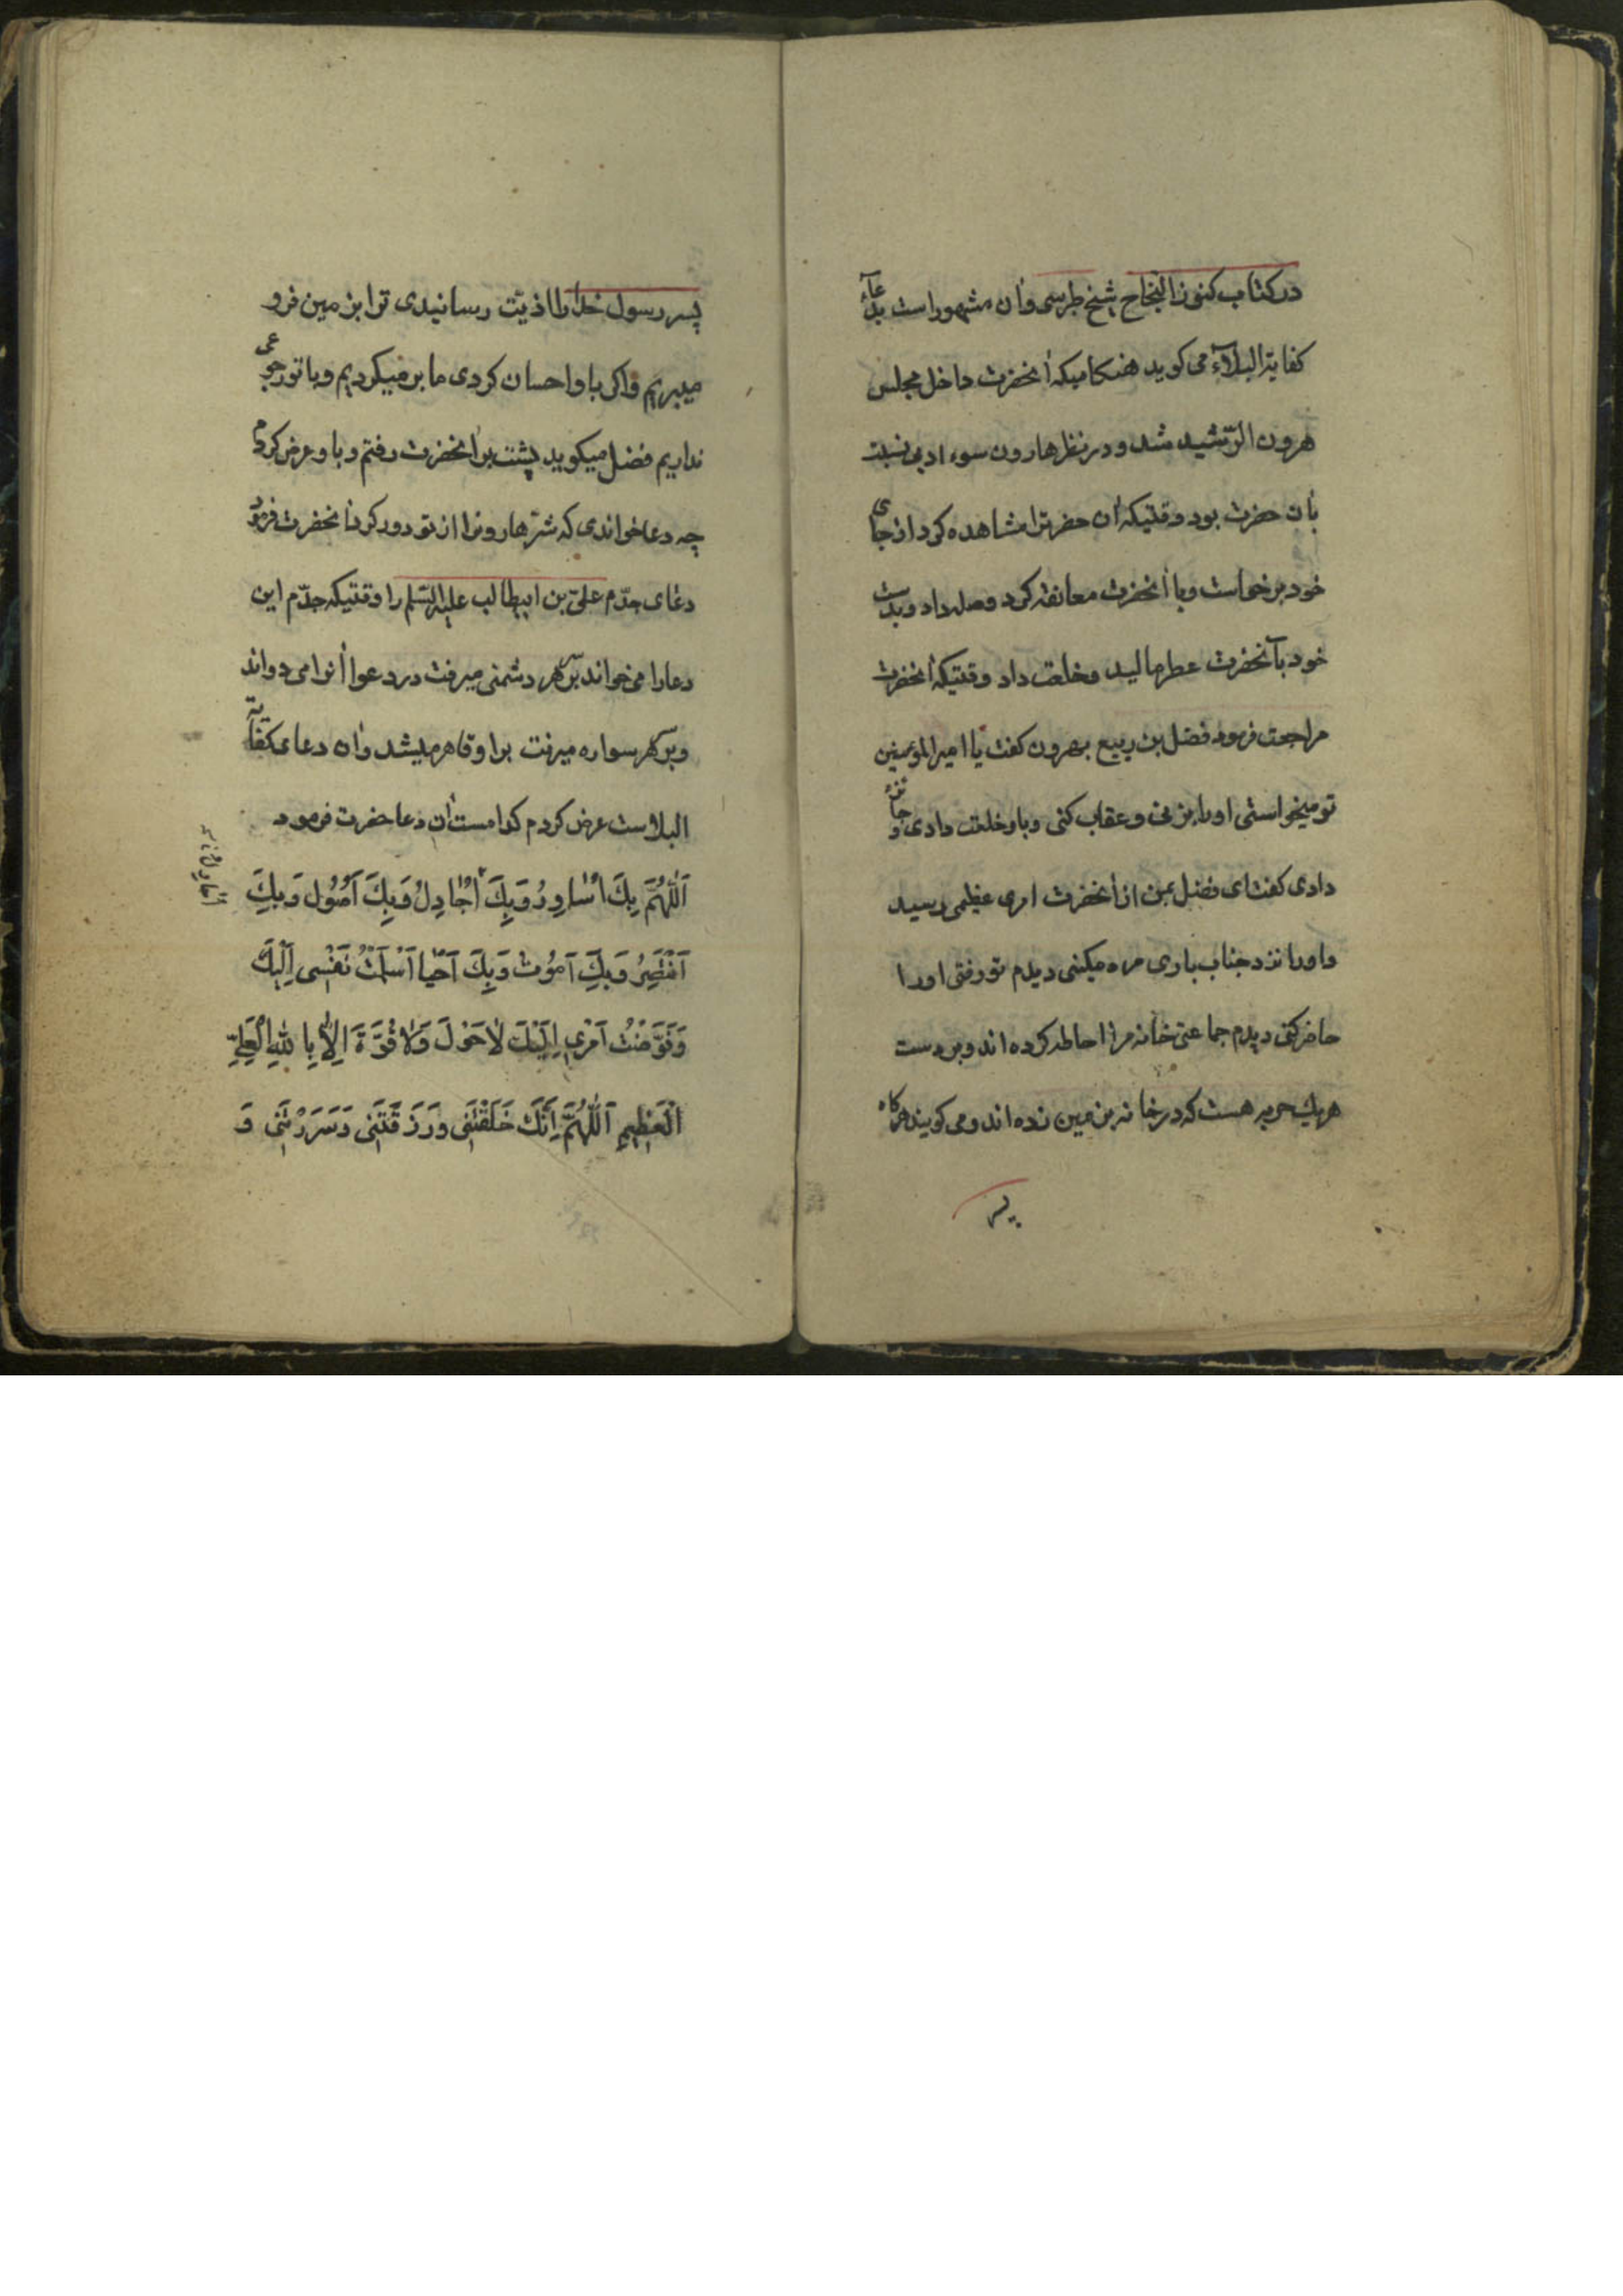 در کتاب کنوز النجاح شیخ طبرسی وآن مشهور است بدعاء
کفایة البلآء می کوید هنکامیکه آنحضرت داخل مجلس
هرون الرّشید شد و در نظر هارون سوء ادبی نسبت
بآن حضرت بود وقتیکه آن حضرترا مشاهده کرد از جای
خود برخواست وبا آنحضرت معانقه کرد وصله داد وبدست
خود بآنحضرت عطر مالید وخلعت داد وقتیکه آنحضرت
مراجعت فرمود فضل بن ربیع بهرون کفت یا امیر المؤمنین
تو میخواستی اورا بزنی وعقاب کنی وباو خلعت دادی وجائزه
دادی کفت ای فضل بمن از آنحضرت امری عظیمی رسید
واورا نزد جناب باری مره میکنی دیدم تو رفتی اورا
حاضر کنی دیدم جماعتی خانه مرا احاطه کرده اند وبر دست
هریك حربه هست که در خانه بزمین زده اند ومی کویند هرکاه
پسر
پسر رسول خدا را اذیّت رسانیدی ترا بزمین فرو
میبریم واکر باو احسان کردی ما برمیکردیم وبا تو رجوعی
نداریم فضل میکوید پشت سر آنحضرت رفتم وباو عرض کردم
چه دعا خواندی که شرّ هارونرا از تو دور کرد آنحضرت فرمود
دعای جدّم علیّ بن ابیطالب علیه السّلم را وقتیکه جدّم این
دعا را می خواند بر سر هر دشمنی میرفت در دعوا آنرا می دواند
وبر سر هر سواره میرفت براو قاهر میشد وآن دعای کفایة
البلاست عرض کردم کدامست آن دعا حضرت فرمود
اَللّٰهُمَّ بِكَ اُسٰاوِرُ وَبِكَ اُجٰادِلُ وَبِكَ اَصُوُل وَبِكَ
اَنْتَصِرُ وَبِكَ اَمُوُت وَبِكَ اَحْيا اَسْلَمْتُ نَفْسِى اِلَيْكَ
وَفَوَّضْتُ اَمْرِى اِلَيْكَ لٰاحَوْلَ وَلٰا قُوَّةَ اِلّٰا بِاللهِ الْعَلِيِّ
الْعَظِيمِ اَللّٰهُمَّ اِنَّكَ خَلَقْتَنِى وَرَزَقْتَنِى وَسَرَرْتَنِى وَ